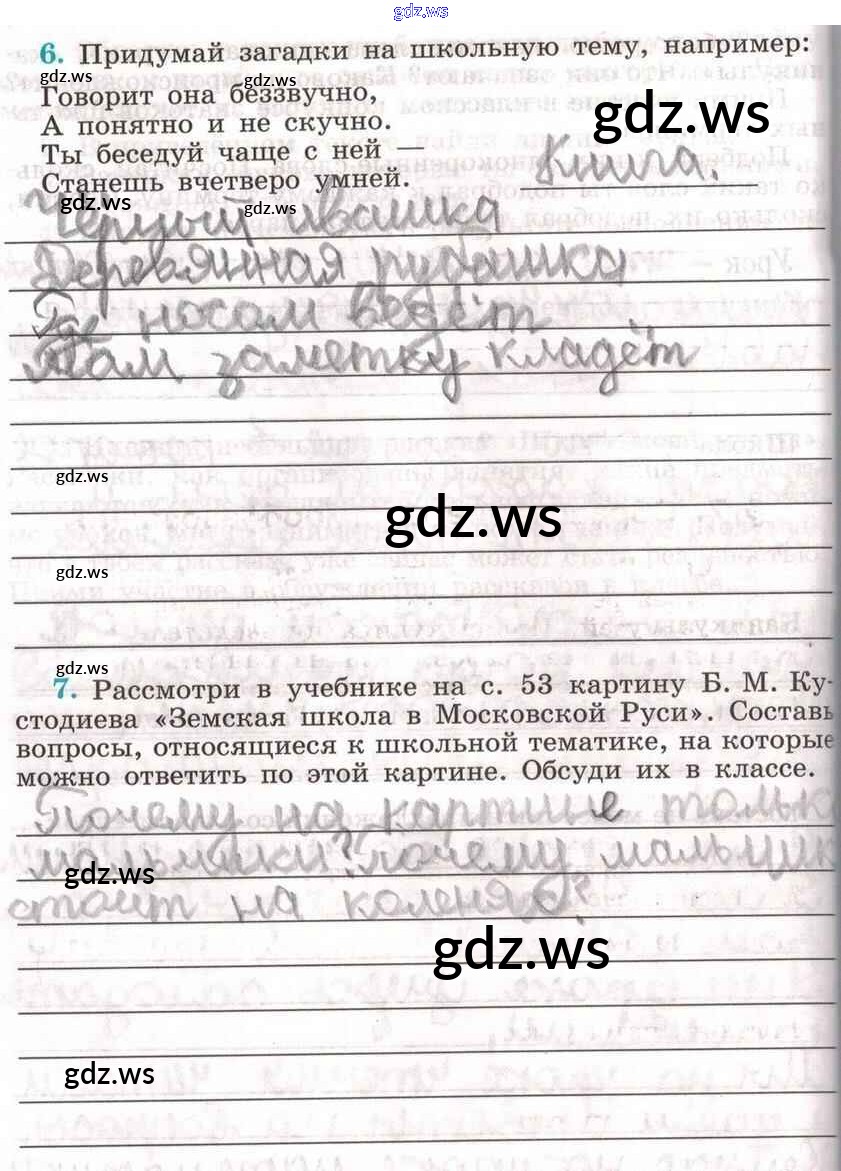 gdz.ws
6. Придумай загадки на школьную тему, например:
gdz.ws gdz.ws
Говорит она беззвучно,
gdz.ws
А понятно и не скучно.
Ты беседуй чаще с ней —
Станешь вчетверо умней. Книга.
gdz.ws gdz.ws
Чёрный ивашка
Деревянная рубашка
Где носом ведёт
Там заметку кладёт
gdz.ws
gdz.ws
gdz.ws
gdz.ws
7. Рассмотри в учебнике на с. 53 картину Б. М. Ку-
стодиева «Земская школа в Московской Руси». Составь
вопросы, относящиеся к школьной тематике, на которые
можно ответить по этой картине. Обсуди их в классе.
Почему на картине тольк
мальчики? почему мальчик
gdz.ws
стоит на коленях?
gdz.ws
gdz.ws